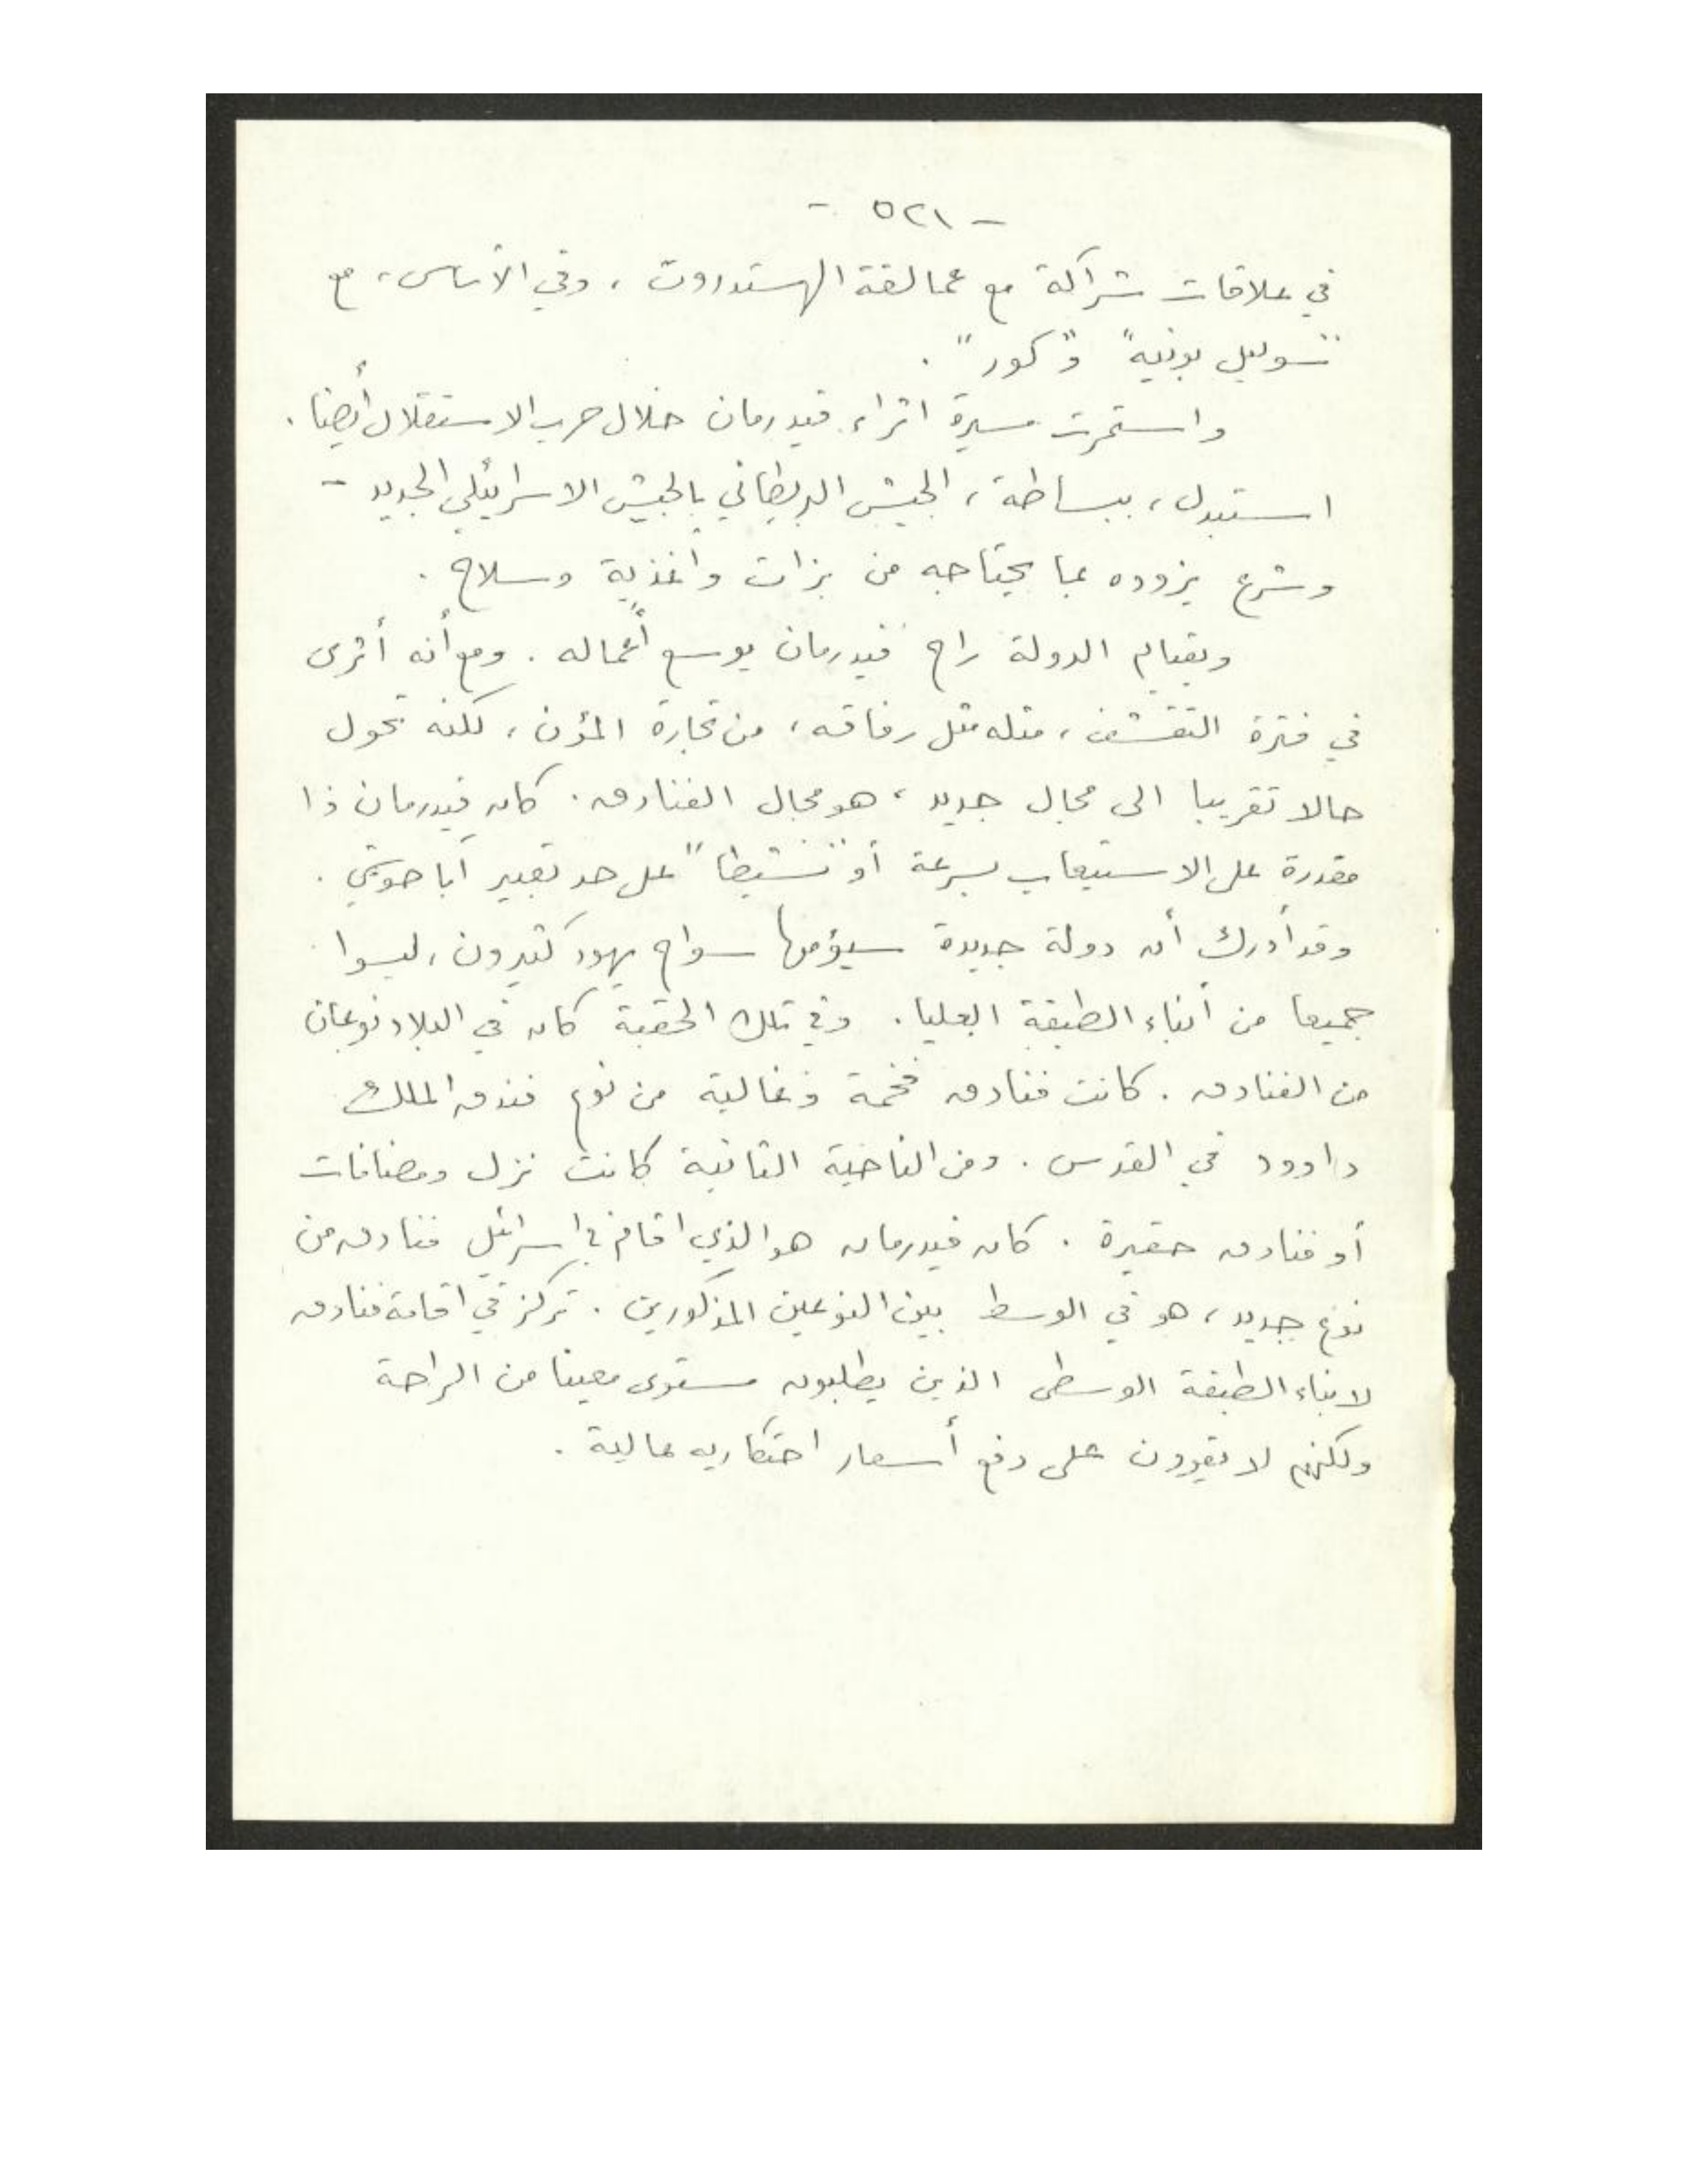 - ٥٢١ -
في علاقات شراكة مع عمالقة الهستدروت ، وفي الأساس ، مع
"سوليل بونيه" و"كور" .
واستمرت مسيرة اثراء فيدرمان خلال حرب الاستقلال أيضا .
استبدل ، ببساطة ، الجيش البريطاني بالجيش الاسرائيلي الجديد -
وشرع يزوده بما يحتاجه من بزات وأغذية وسلاح .
وبقيام الدولة راح فيدرمان يوسع أعماله . ومع أنه أثرى
في فترة التقشف ، مثله مثل رفاقه ، من تجارة المؤن ، لكنه تحول
حالا تقريبا الى مجال جديد ، هو مجال الفنادق . كان فيدرمان ذا
مقدرة على الاستيعاب بسرعة أو على حد تعبير آبا حوشي .
وقد أدرك أن دولة جديدة سيؤمها سواح يهود كثيرون ، ليسوا
جميعا من أبناء الطبقة العليا . وفي تلك الحقبة كان في البلاد نوعان
من الفنادق . كانت فنادق فخمة وغالية من نوع فندق الملك
داوود في القدس . ومن الناحية الثانية كانت نزل ومضافات
أو فنادق حقيرة . كان فيدرمان هو الذي اقام في اسرائيل فنادق من
نوع جديد ، هو في الوسط بين النوعين المذكورين . تركز في اقامة فنادق
لابناء الطبقة الوسطى الذين يطلبون مستوى معينا من الراحة
ولكنهم لا يقوون على دفع أسعار احتكاريه عالية .